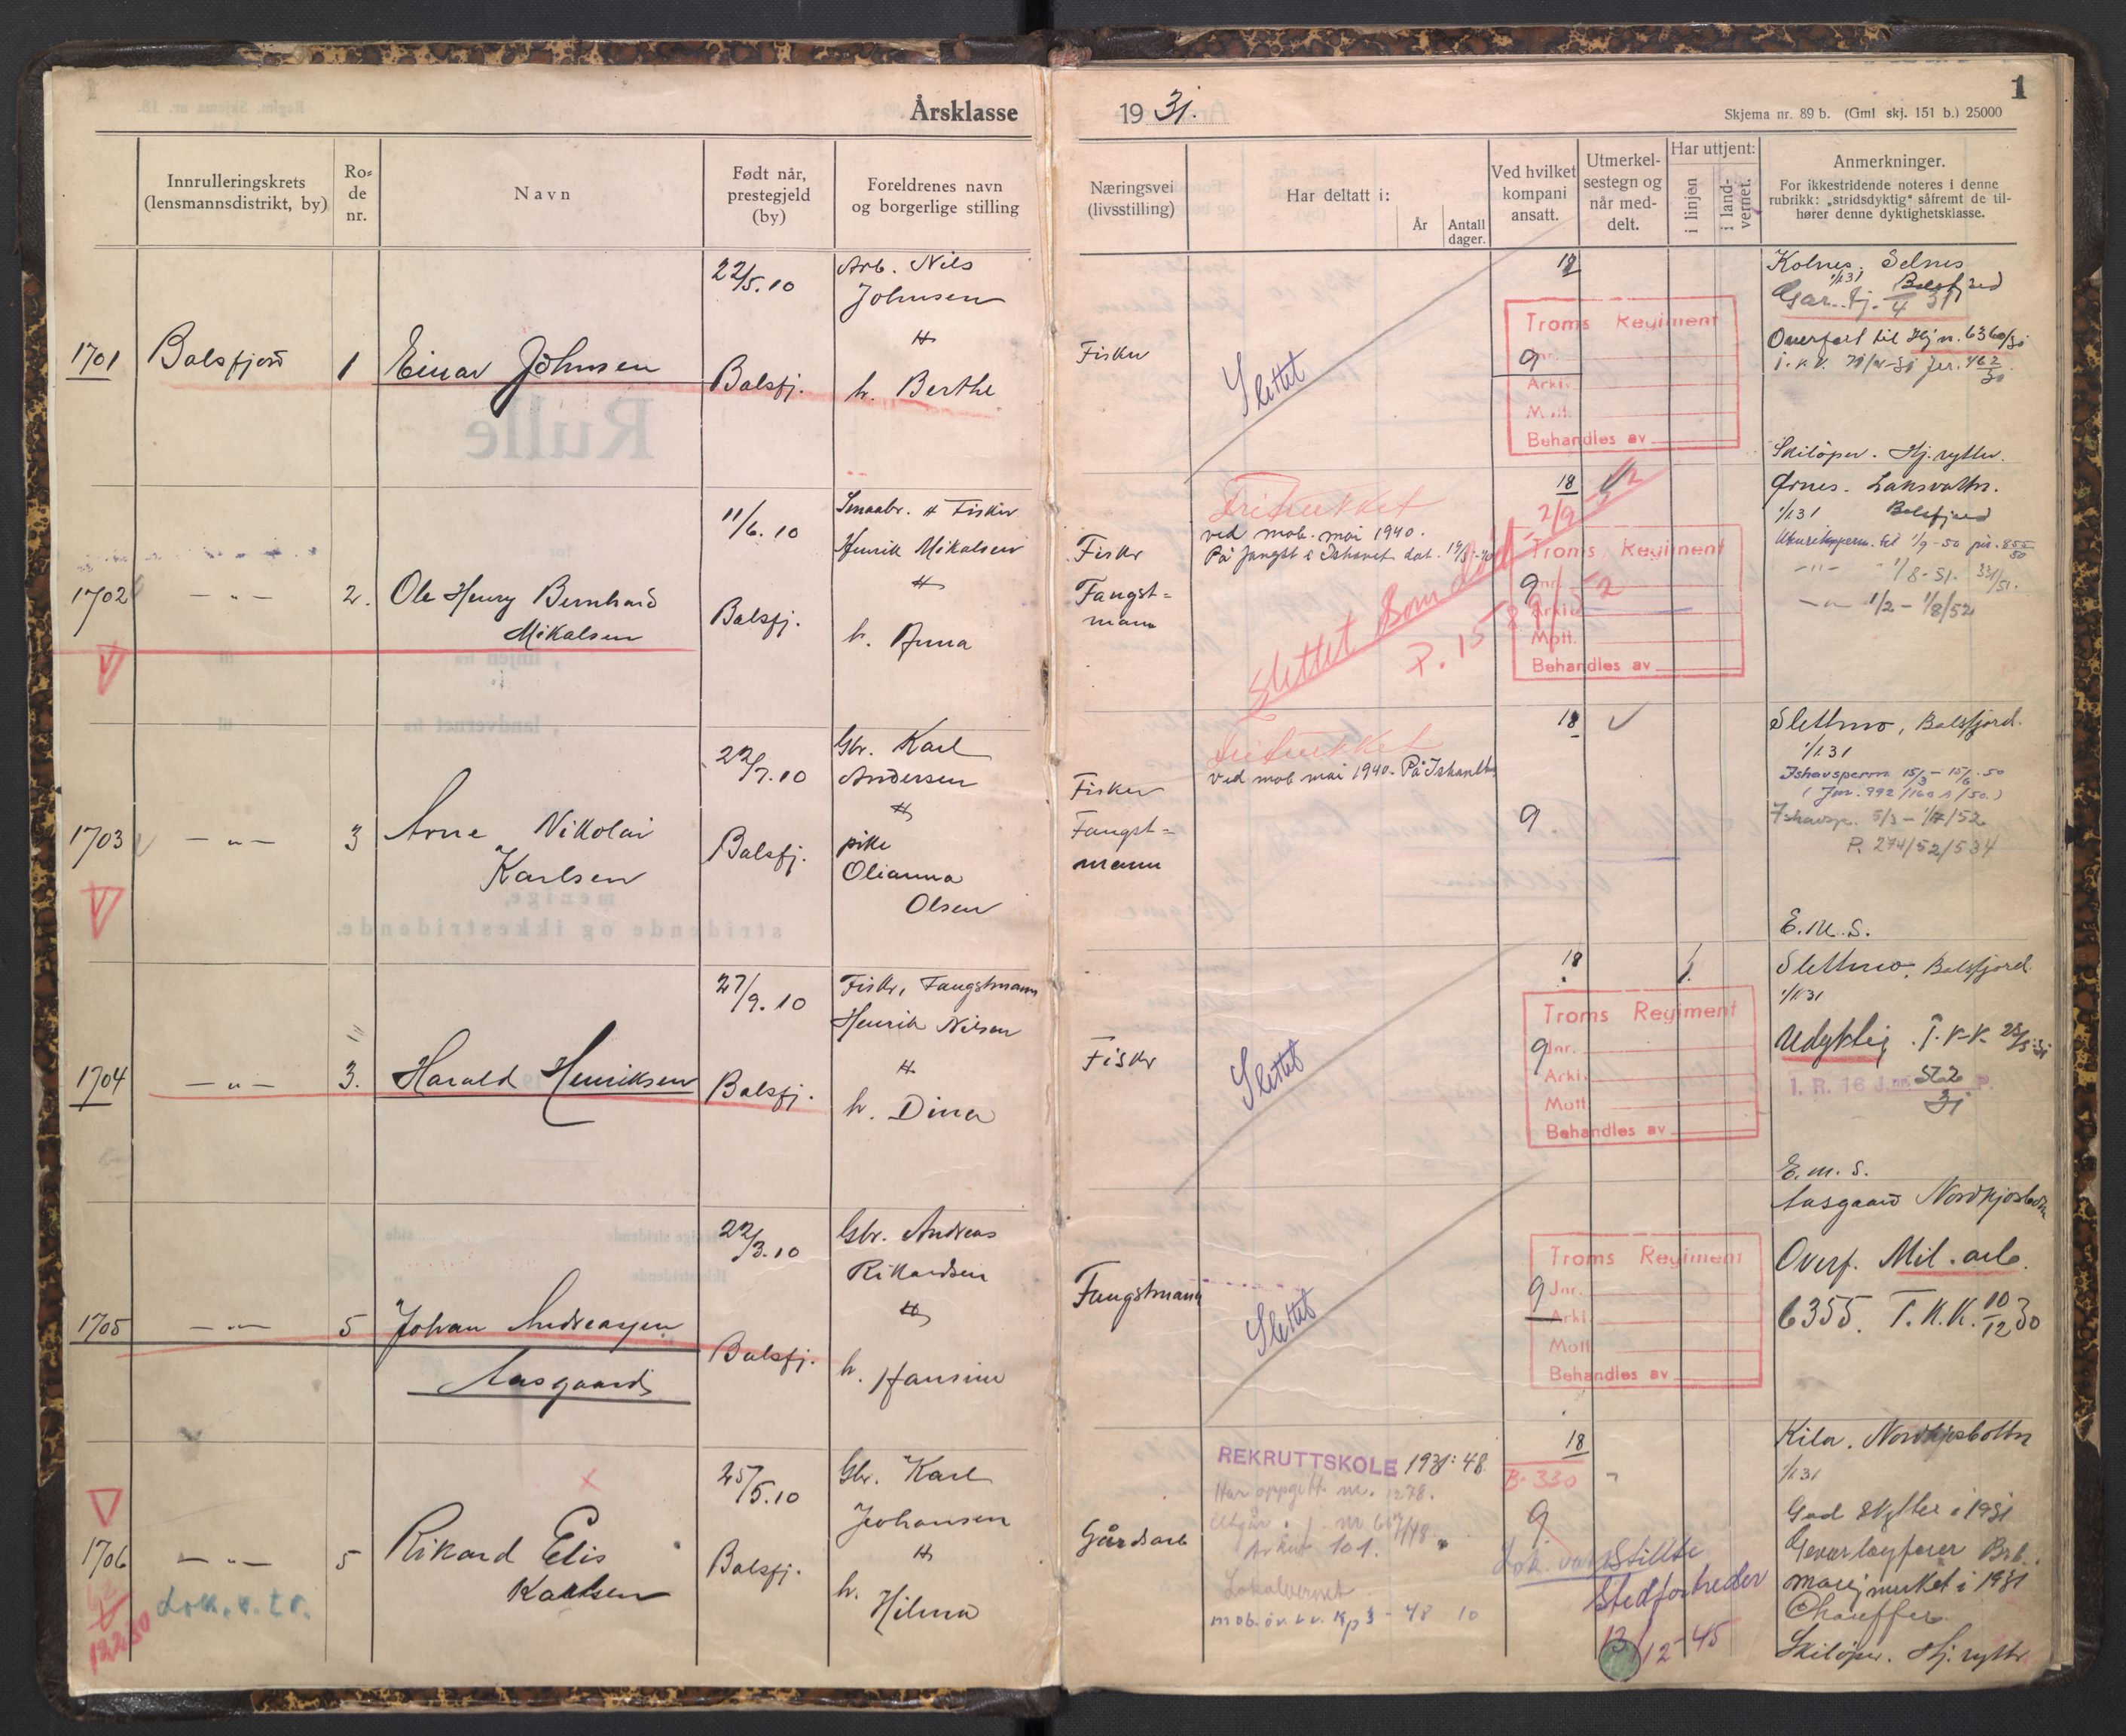 Årsklasse
1931.
1
Skjema nr. 89 b. (Gml skj. 151 b.) 25000
Innrulleringskrets
(lensmannsdistrikt, by)
Ro-
de
nr.
Navn
Født når,
prestegjeld
(by)
Foreldrenes navn
og borgerlige stilling
Næringsvei
(livsstilling)
Har deltatt i:
År
Antall
dager.
Ved hvilket
kompani
ansatt.
Utmerkel-
sestegn og
når med-
delt.
Har uttjent:
i linjen
i land-
vernet.
Anmerkninger.
For ikkestridende noteres i denne
rubrikk: „stridsdyktig" såfremt de til-
hører denne dyktighetsklasse.
1701
Balsfjord
1
Einar Johnsen
22/5.10
Balsfj.
Arb. Nils
Johnsen
h. Berthe
Fisker
Slettet
18
9
Troms Regiment
Jnr.
Arkiv
Mott.
Behandles av
Kolnes. Selnes
1/1 31 Balsfjord
Overført til Hj n. 6360/30
Skiløper. Hj. rytter.
1702
— " —
2.
Ole Henry Bernhard
Mikalsen
11/6.10
Balsfj.
Smaabr. & Fisker
Henrik Mikalsen
h. Anna
Fisker
Fangst=
mann
ved mob. mai 1940.
På fangst i Ishavet
Slettet som
18
9
Troms Regiment
Jnr.
Arkiv
Mott.
Behandles av
Ørnes. Laksvatn.
1/1 31 Balsfjord
1/8-51.
1/2 - 1/8/52
1703
— " —
3
Arne Nikolai
Karlsen
22/7.10
Balsfj.
Gbr. Karl
Andersen
pike
Olianna
Olsen
Fisker
Fangst=
mann
ved mob mai 1940. På Ishavet
18
9
Slettmo, Balsfjord.
1/1 31
Ishavsperm 15/3 - 15/6 50
(Jnr. 992/160 A/50.)
P. 274/52/534
E.M.S.
1704
— " —
3.
Harald Henriksen
27/9.10
Balsfj.
Fisker, Fangstmann
Henrik Nilsen
h. Dina
Fisker
Slettet
18
9
Troms Regiment
Jnr.
Arkiv
Mott.
Behandles av
Slettmo, Balsfjord.
1/1 31
Udyktig.
I. R. 16 J.nr.
E.m.S.
1705
— " —
5
Johan Andreassen
Aasgaard
22/3.10
Balsfj.
Gbr. Andreas
Rikardsen
h. Hansine
Fangstmann
Slettet
9
Troms Regiment
Jnr.
Arkiv
Mott
Behandles av
Aasgaard Nordkjosbotn
Overf. Mil. arb.
6355. T.K.K. 10/12 30
1706
— " —
5
Rikard Elis
Karlsen
Lok. v. tr.
12250
25/5.10
Balsfj.
Gbr. Karl
Johansen
h.
Hilma
Gårdsarb
REKRUTTSKOLE 1931: 48.
Har oppgitt nr. 1278.
Lokalvernet
18
B. 330
9
Stedfortreder
13/12-45
Kila. Nordkjosbotn
1/1 31
God skytter i 1931
merket i 1931
Chauffør
Skiløper. Hj. rytter